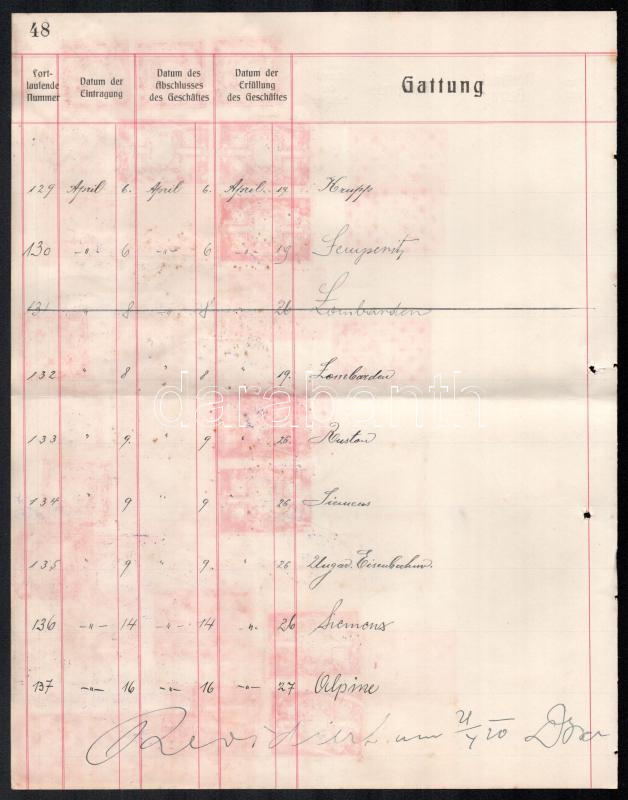 48
Fort-
laufende
Nummer
Datum der
Eintragung
Datum des
Abschlusses
des Geschäftes
Datum der
Erfüllung
des Geschäftes
Gattung
129 April 6. April 6. April 19. Krupp
130 –"– 6 –"– 6 –"– 19 Semperit
131 " 8 " 8 " 26 Lombarden
132 " 8 " 8 " 19. Lombarden
133 " 9. " 9 " 26. Ruston
134 " 9 " 9 26. Siemens
135 " 9 " 9. " 26 Ungar. Eisenbahn.
136 –"– 14 –"– 14 ". 26 Siemens
137 –"– 16 –"– 16 –"– 27 Alpine
Revidiert am 21/V 20
darabanth.com